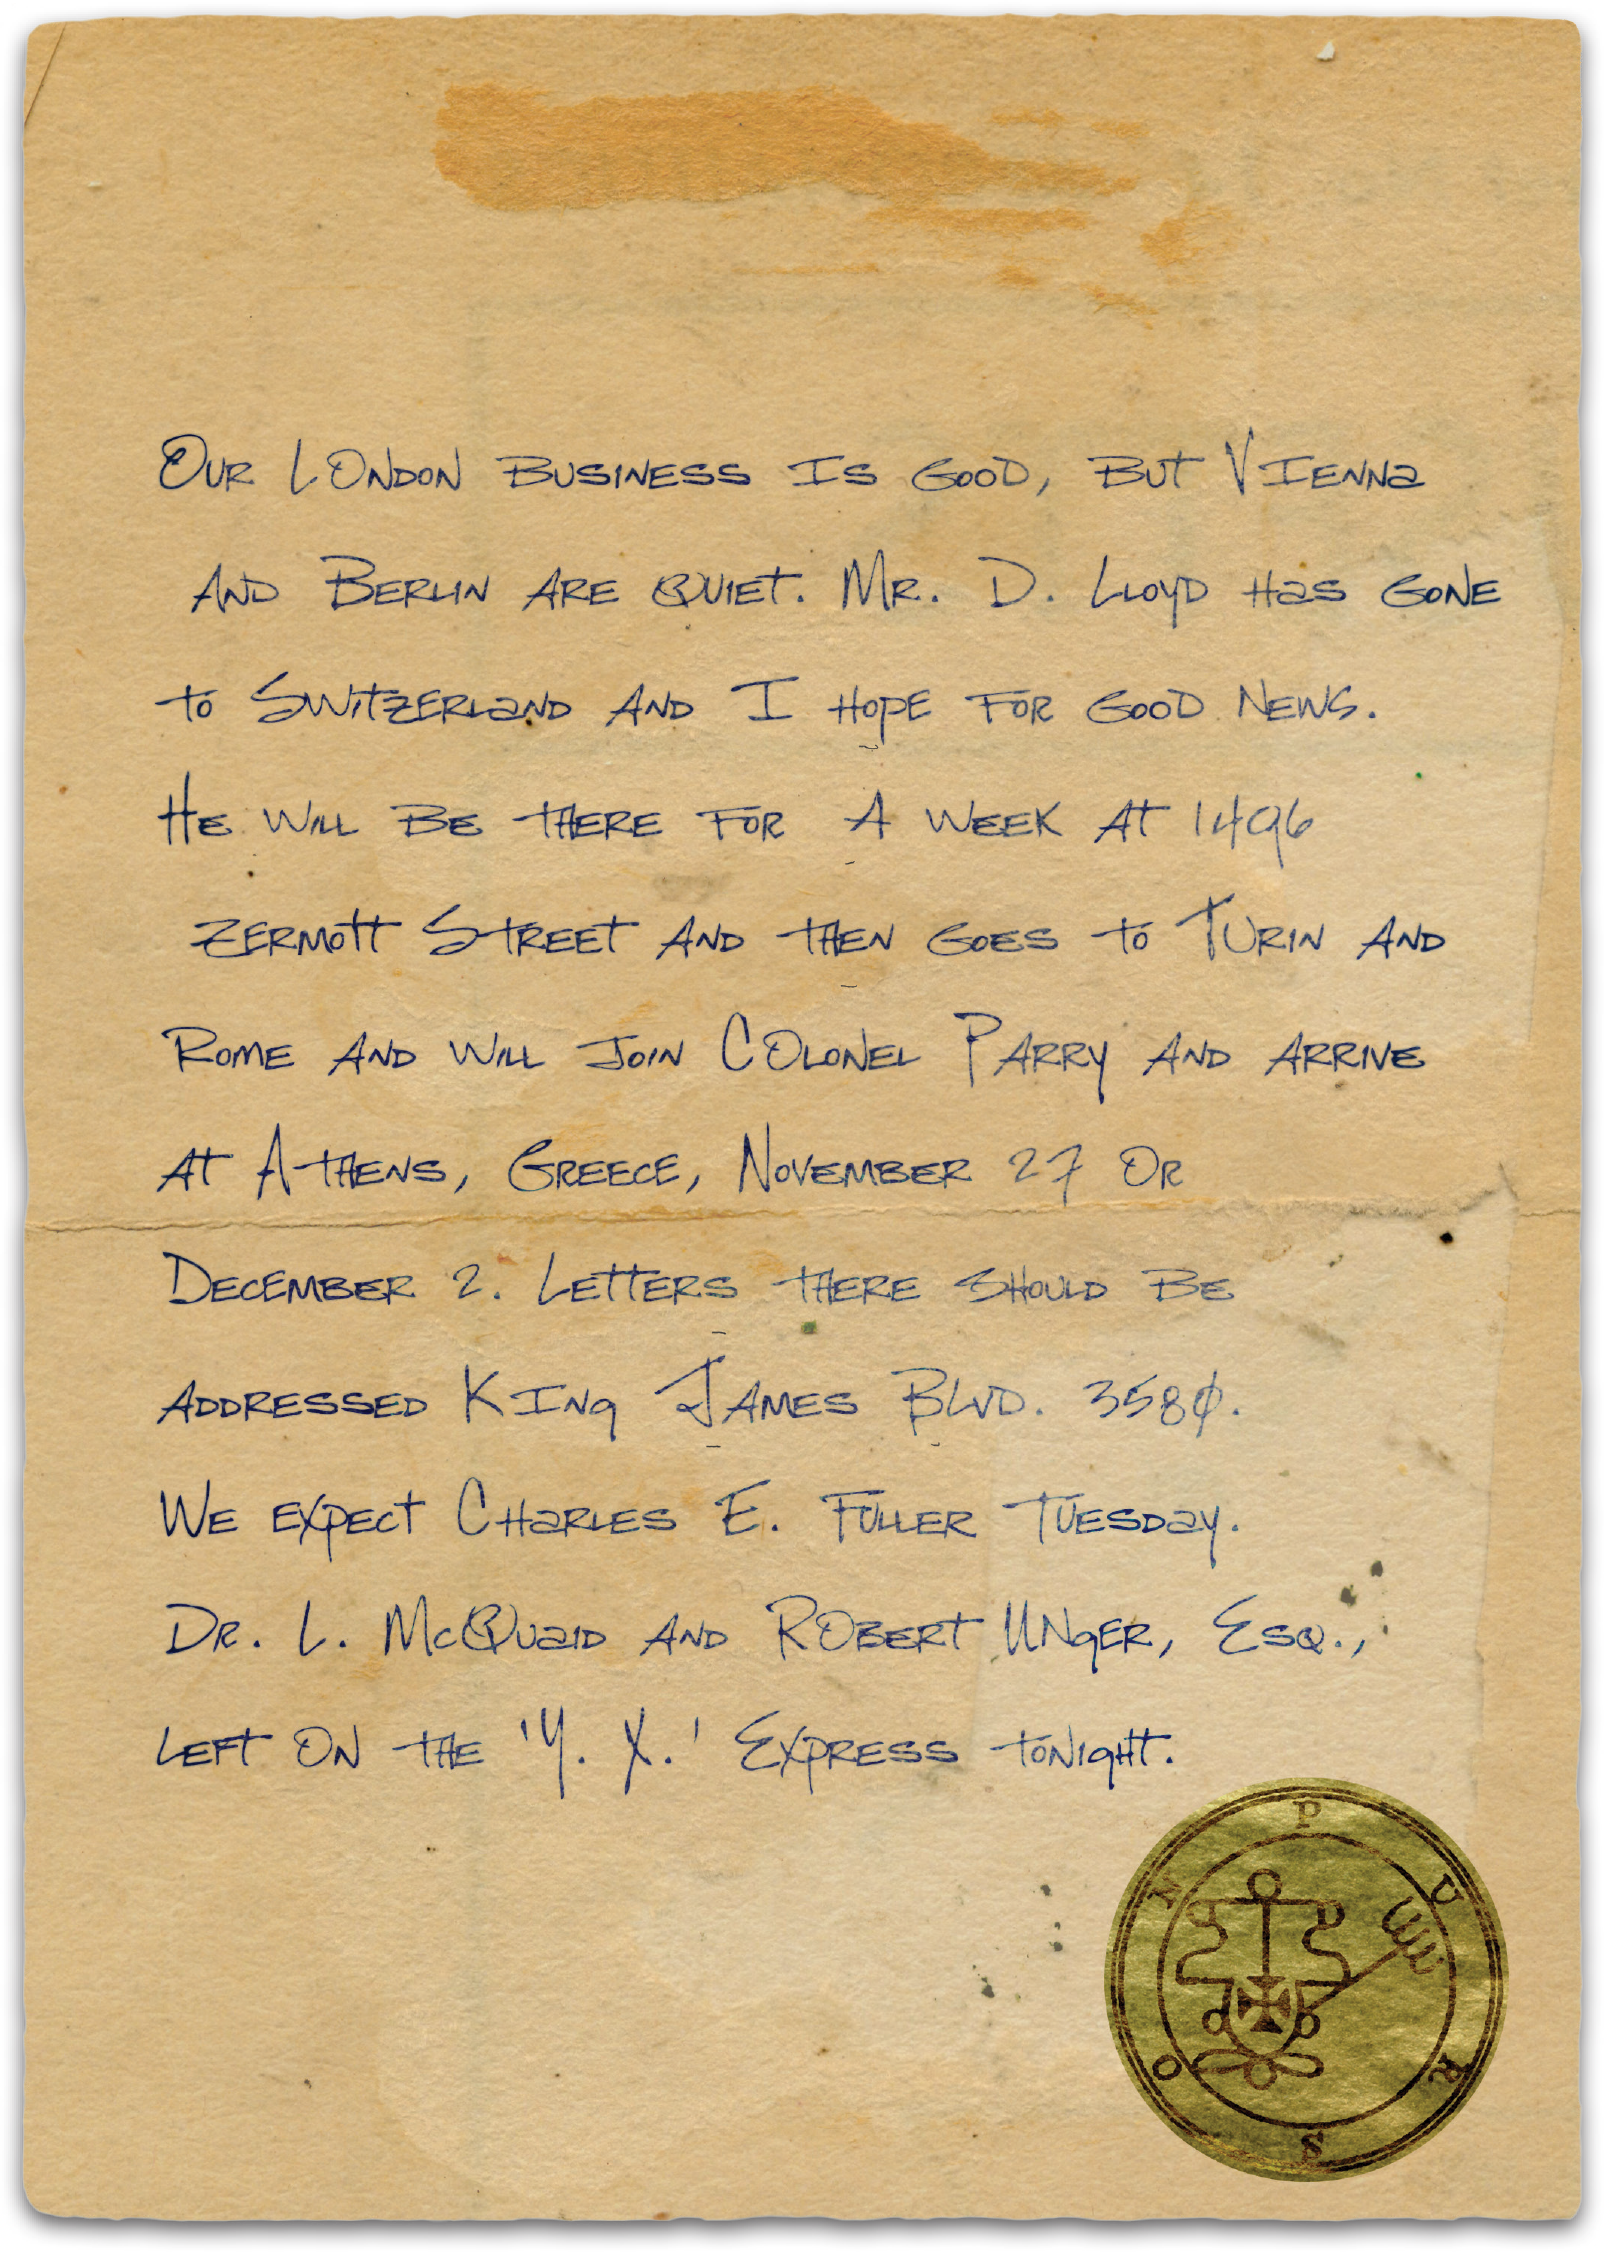 Our London business is good, but Vienna
and Berlin are quiet. Mr. D. Lloyd has gone
to Switzerland and I hope for good news.
He will be there for a week at 1496
Zermott Street and then goes to Turin and
Rome and will join Colonel Parry and arrive
at Athens, Greece, November 27 or
December 2. Letters there should be
addressed King James Blvd. 3580.
We expect Charles E. Fuller Tuesday.
Dr. L. McQuaid and Robert Unger, Esq.,
left on the 'Y. X.' Express tonight.
PURSON